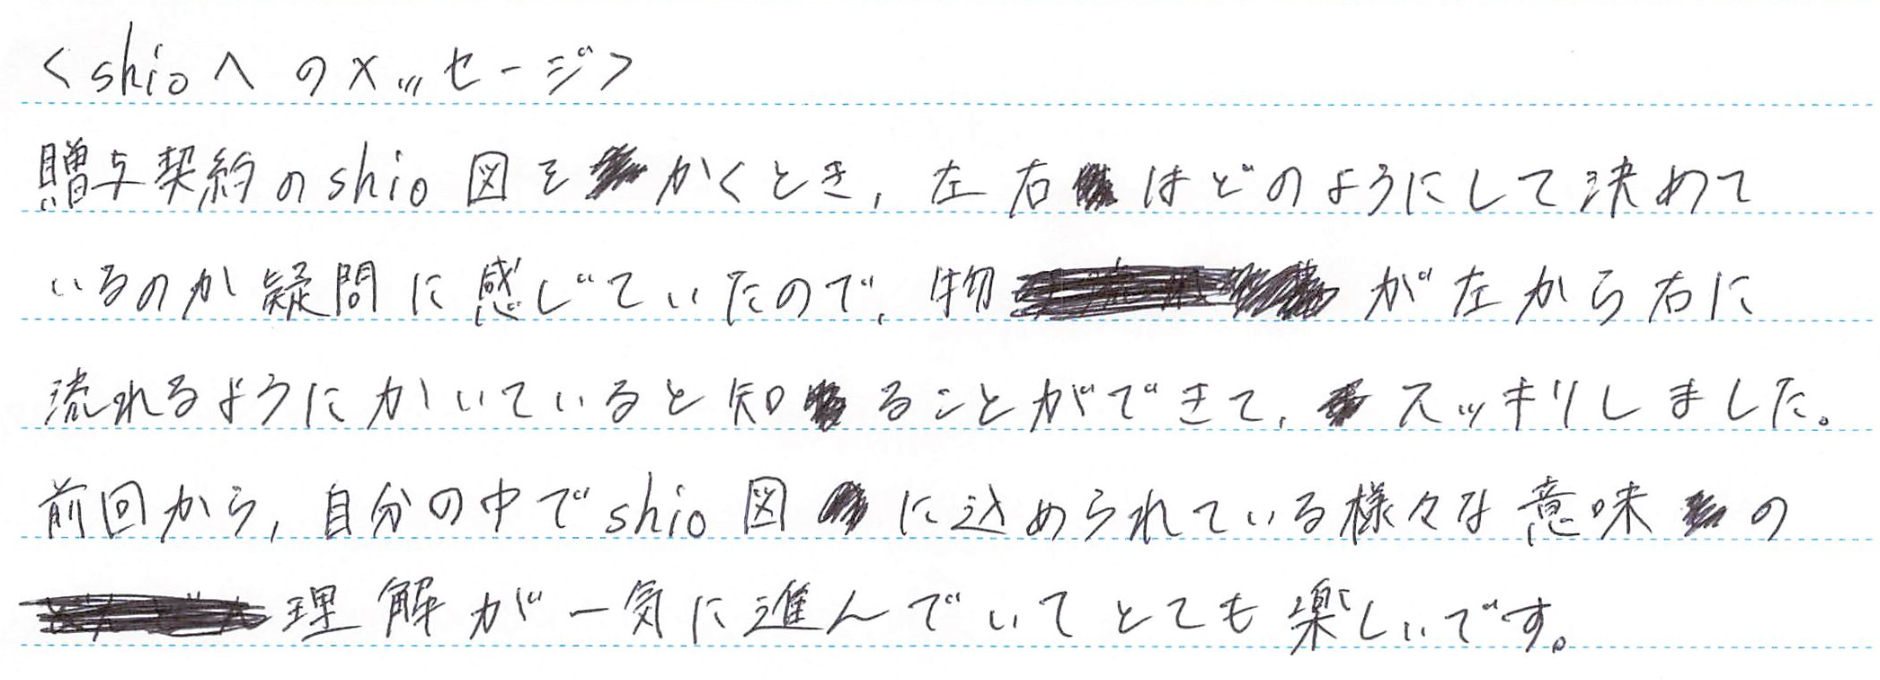 ＜shioへのメッセージ＞
贈与契約のshio図をかくとき, 左右はどのようにして決めて
いるのか疑問に感じていたので, 物が左から右に
流れるようにかいていると知ることができて, スッキリしました。
前回から, 自分の中でshio図に込められている様々な意味の
理解が一気に進んでいてとても楽しいです。